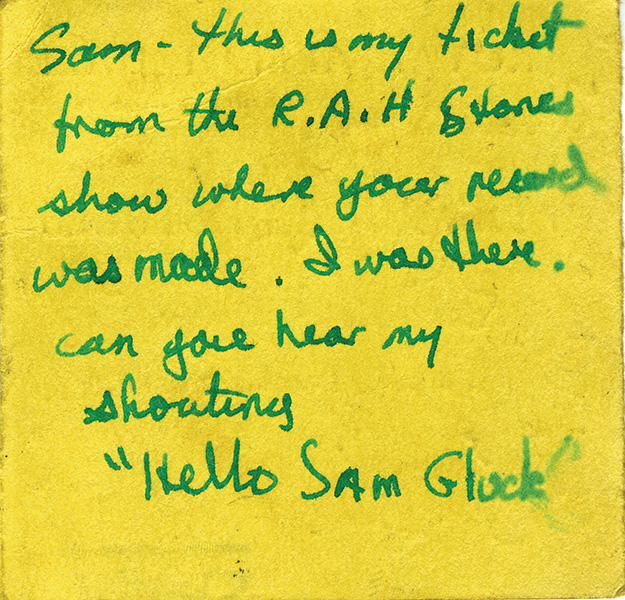 Sam - this is my ticket
from the R.A.H Stones
show where your record
was made. I was there.
can you hear my
shouting
"Hello SAM Gluck"